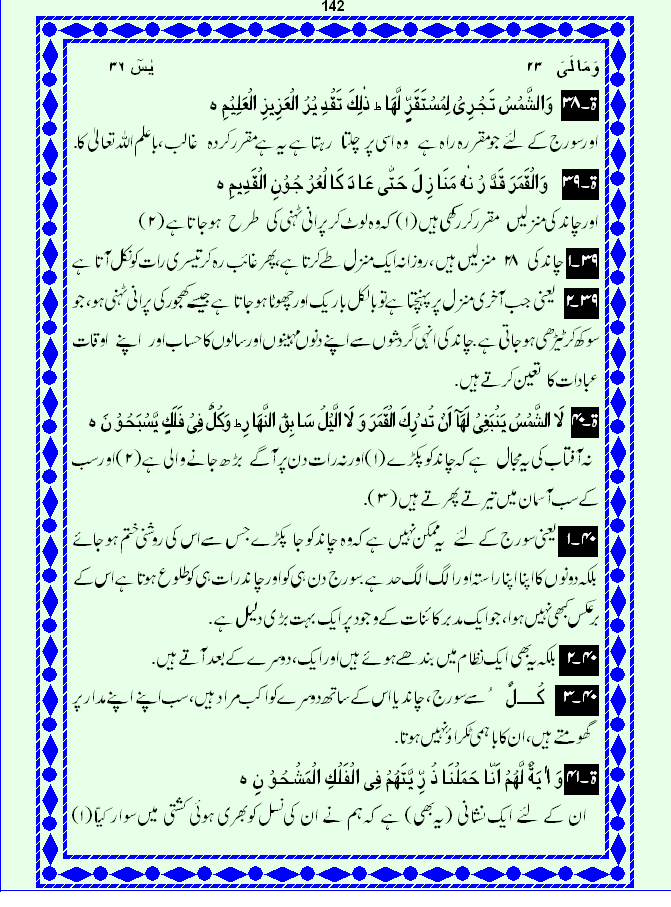 142
وَمَالَیَ ۲۳ یٰسٓ ۳۶
ة۔۳۸ وَالشَّمْسُ تَجْرِیْ لِمُسْتَقَرٍّ لَّھَا ط ذٰلِكَ تَقْدِیْرُ الْعَزِیْزِ الْعَلِیْمِ ہ
اور سورج کے لئے جو مقررہ راہ ہے وہ اسی پر چلتا رہتا ہے یہ ہے مقرر کردہ غالب، باعلم اللہ تعالیٰ کا.
ة۔۳۹ وَالْقَمَرَ قَدَّرْنٰہُ مَنَازِلَ حَتّٰی عَادَ کَالْعُرْجُوْنِ الْقَدِیْمِ ہ
اور چاند کی منزلیں مقرر کر رکھی ہیں (۱) کہ وہ لوٹ کر پرانی ٹہنی کی طرح ہو جاتا ہے (۲)
۳۹۔۱ چاند کی ۲۸ منزلیں ہیں، روزانہ ایک منزل طے کرتا ہے، پھر غائب رہ کر تیسری رات کو نکل آتا ہے
۳۹۔۲ یعنی جب آخری منزل پر پہنچتا ہے تو بالکل باریک اور چھوٹا ہو جاتا ہے جیسے کھجور کی پرانی ٹہنی ہو، جو
سوکھ کر ٹیڑھی ہو جاتی ہے. چاند کی انہی گردشوں سے اپنے دنوں مہینوں اور سالوں کا حساب اور اپنے اوقات
عبادات کا تعین کرتے ہیں.
ة۔۴۰ لَا الشَّمْسُ یَنْبَغِیْ لَھَآ اَنْ تُدْرِكَ الْقَمَرَ وَلَا الَّیْلُ سَابِقُ النَّھَارِ ط وَکُلٌّ فِیْ فَلَكٍ یَّسْبَحُوْنَ ہ
نہ آفتاب کی یہ مجال ہے کہ چاند کو پکڑے (۱) اور نہ رات دن پر آگے بڑھ جانے والی ہے (۲) اور سب
کے سب آسمان میں تیرتے پھرتے ہیں (۳).
۴۰۔۱ یعنی سورج کے لئے یہ ممکن نہیں ہے کہ وہ چاند کو جا پکڑے جس سے اس کی روشنی ختم ہو جائے
بلکہ دونوں کا اپنا اپنا راستہ اور الگ الگ حد ہے. سورج دن ہی کو اور چاند رات ہی کو طلوع ہوتا ہے اس کے
برعکس کبھی نہیں ہوا، جو ایک مدبر کائنات کے وجود پر ایک بہت بڑی دلیل ہے.
۴۰۔۲ بلکہ یہ بھی ایک نظام میں بندھے ہوئے ہیں اور ایک، دوسرے کے بعد آتے ہیں.
۴۰۔۳ کُلٌّ سے سورج، چاند یا اس کے ساتھ دوسرے کواکب مراد ہیں، سب اپنے اپنے مدار پر
گھومتے ہیں، ان کا باہمی ٹکراؤ نہیں ہوتا.
ة۔۴۱ وَاٰیَةٌ لَّھُمْ اَنَّا حَمَلْنَا ذُرِّیَّتَھُمْ فِی الْفُلْكِ الْمَشْحُوْنِ ہ
ان کے لئے ایک نشانی (یہ بھی) ہے کہ ہم نے ان کی نسل کو بھری ہوئی کشتی میں سوار کیا (۱)